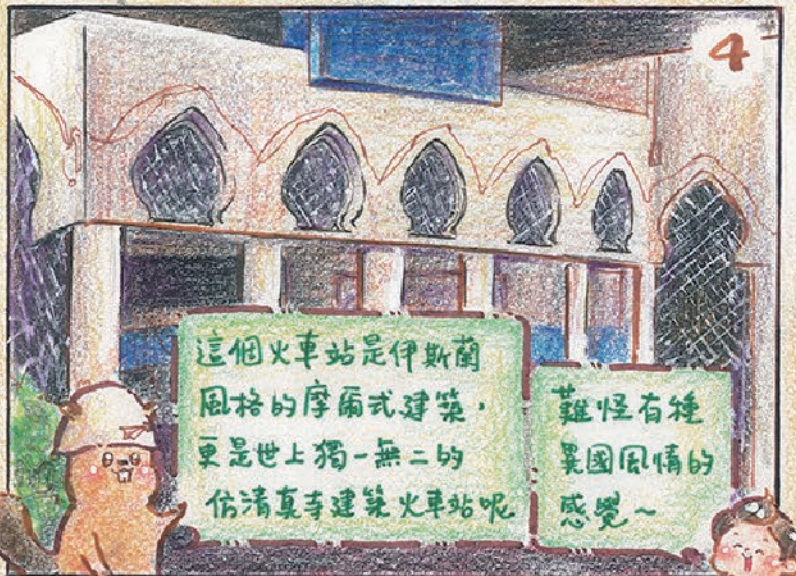 4
這個火車站是伊斯蘭
風格的摩爾式建築，
更是世上獨一無二的
仿清真寺建築火車站呢
難怪有種
異國風情的
感覺～